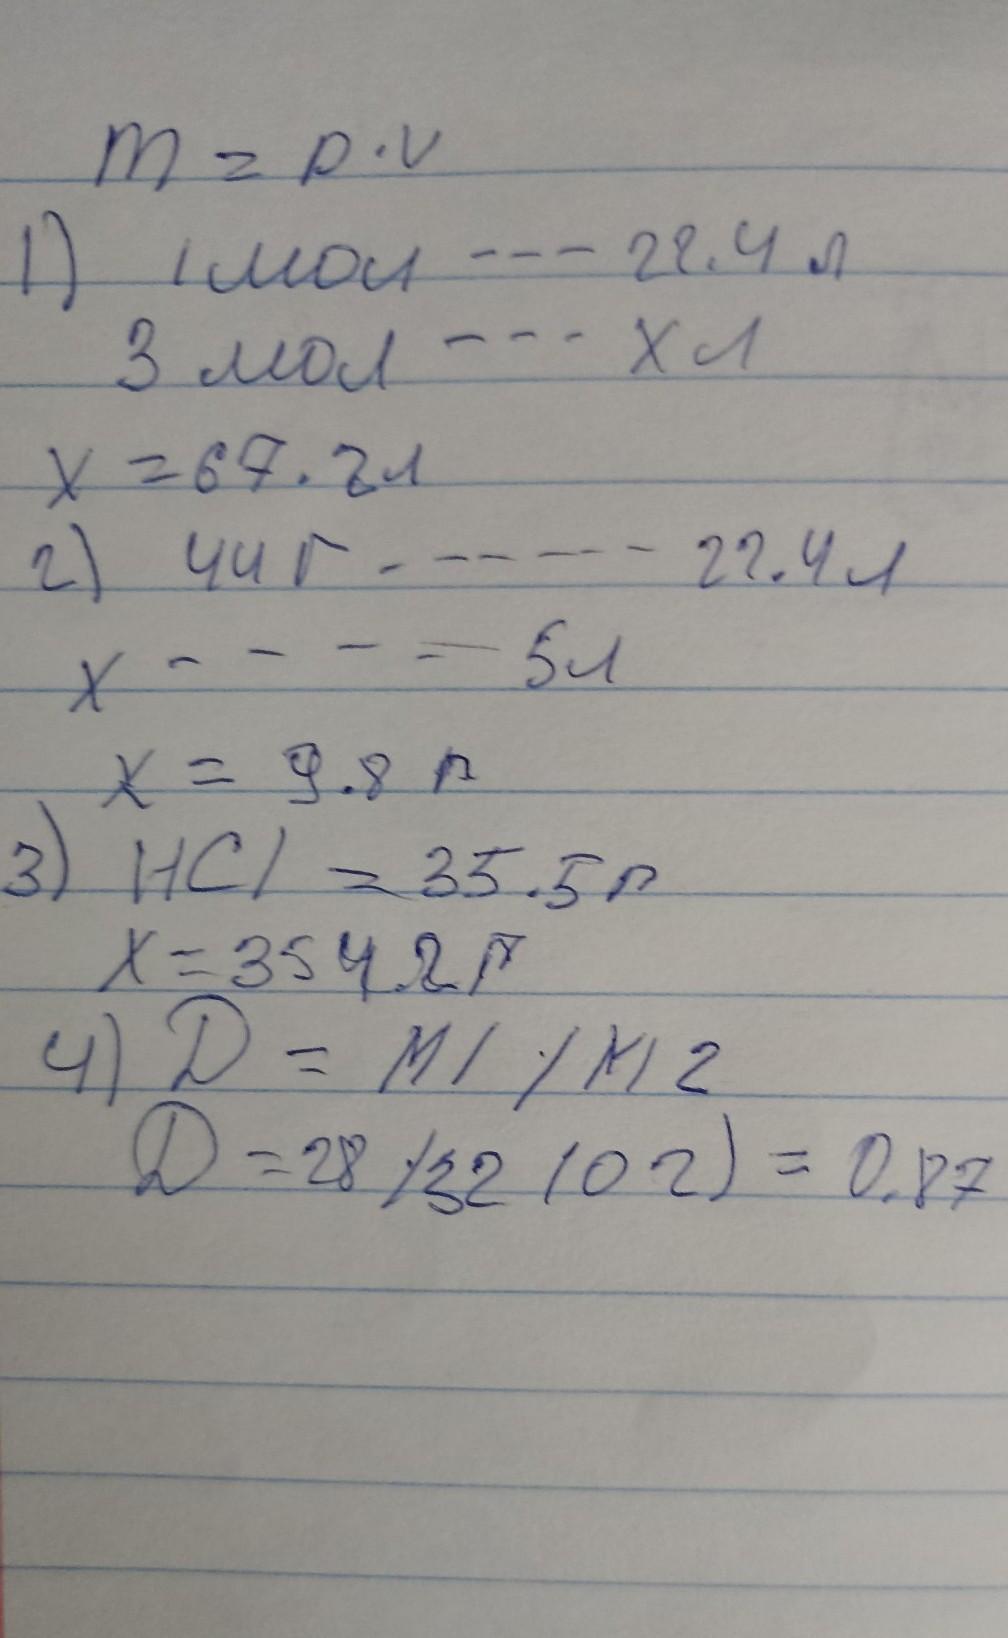 m = p·v
1) 1 мол --- 22.4 л
3 мол --- x л
x = 67.2л
2) 44 г ------ 22.4 л
x ---- 5л
x = 9.8 г
3) HCl = 35.5г
x = 354.2г
4) D = M1 / M2
D = 28 / 32 (O2) = 0.87